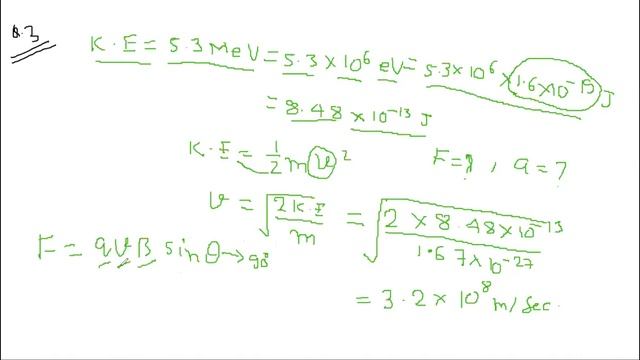 Q.3
K.E = 5.3 MeV = 5.3 × 10⁶ eV = 5.3 × 10⁶ × 1.6 × 10⁻¹⁹ J
= 8.48 × 10⁻¹³ J
K.E = 1/2 m v² F = ? , a = ?
v = √(2K.E/m) = √(2 × 8.48 × 10⁻¹³ / 1.67 × 10⁻²⁷)
F = qvB sinθ → 90°
= 3.2 × 10⁸ m/sec.